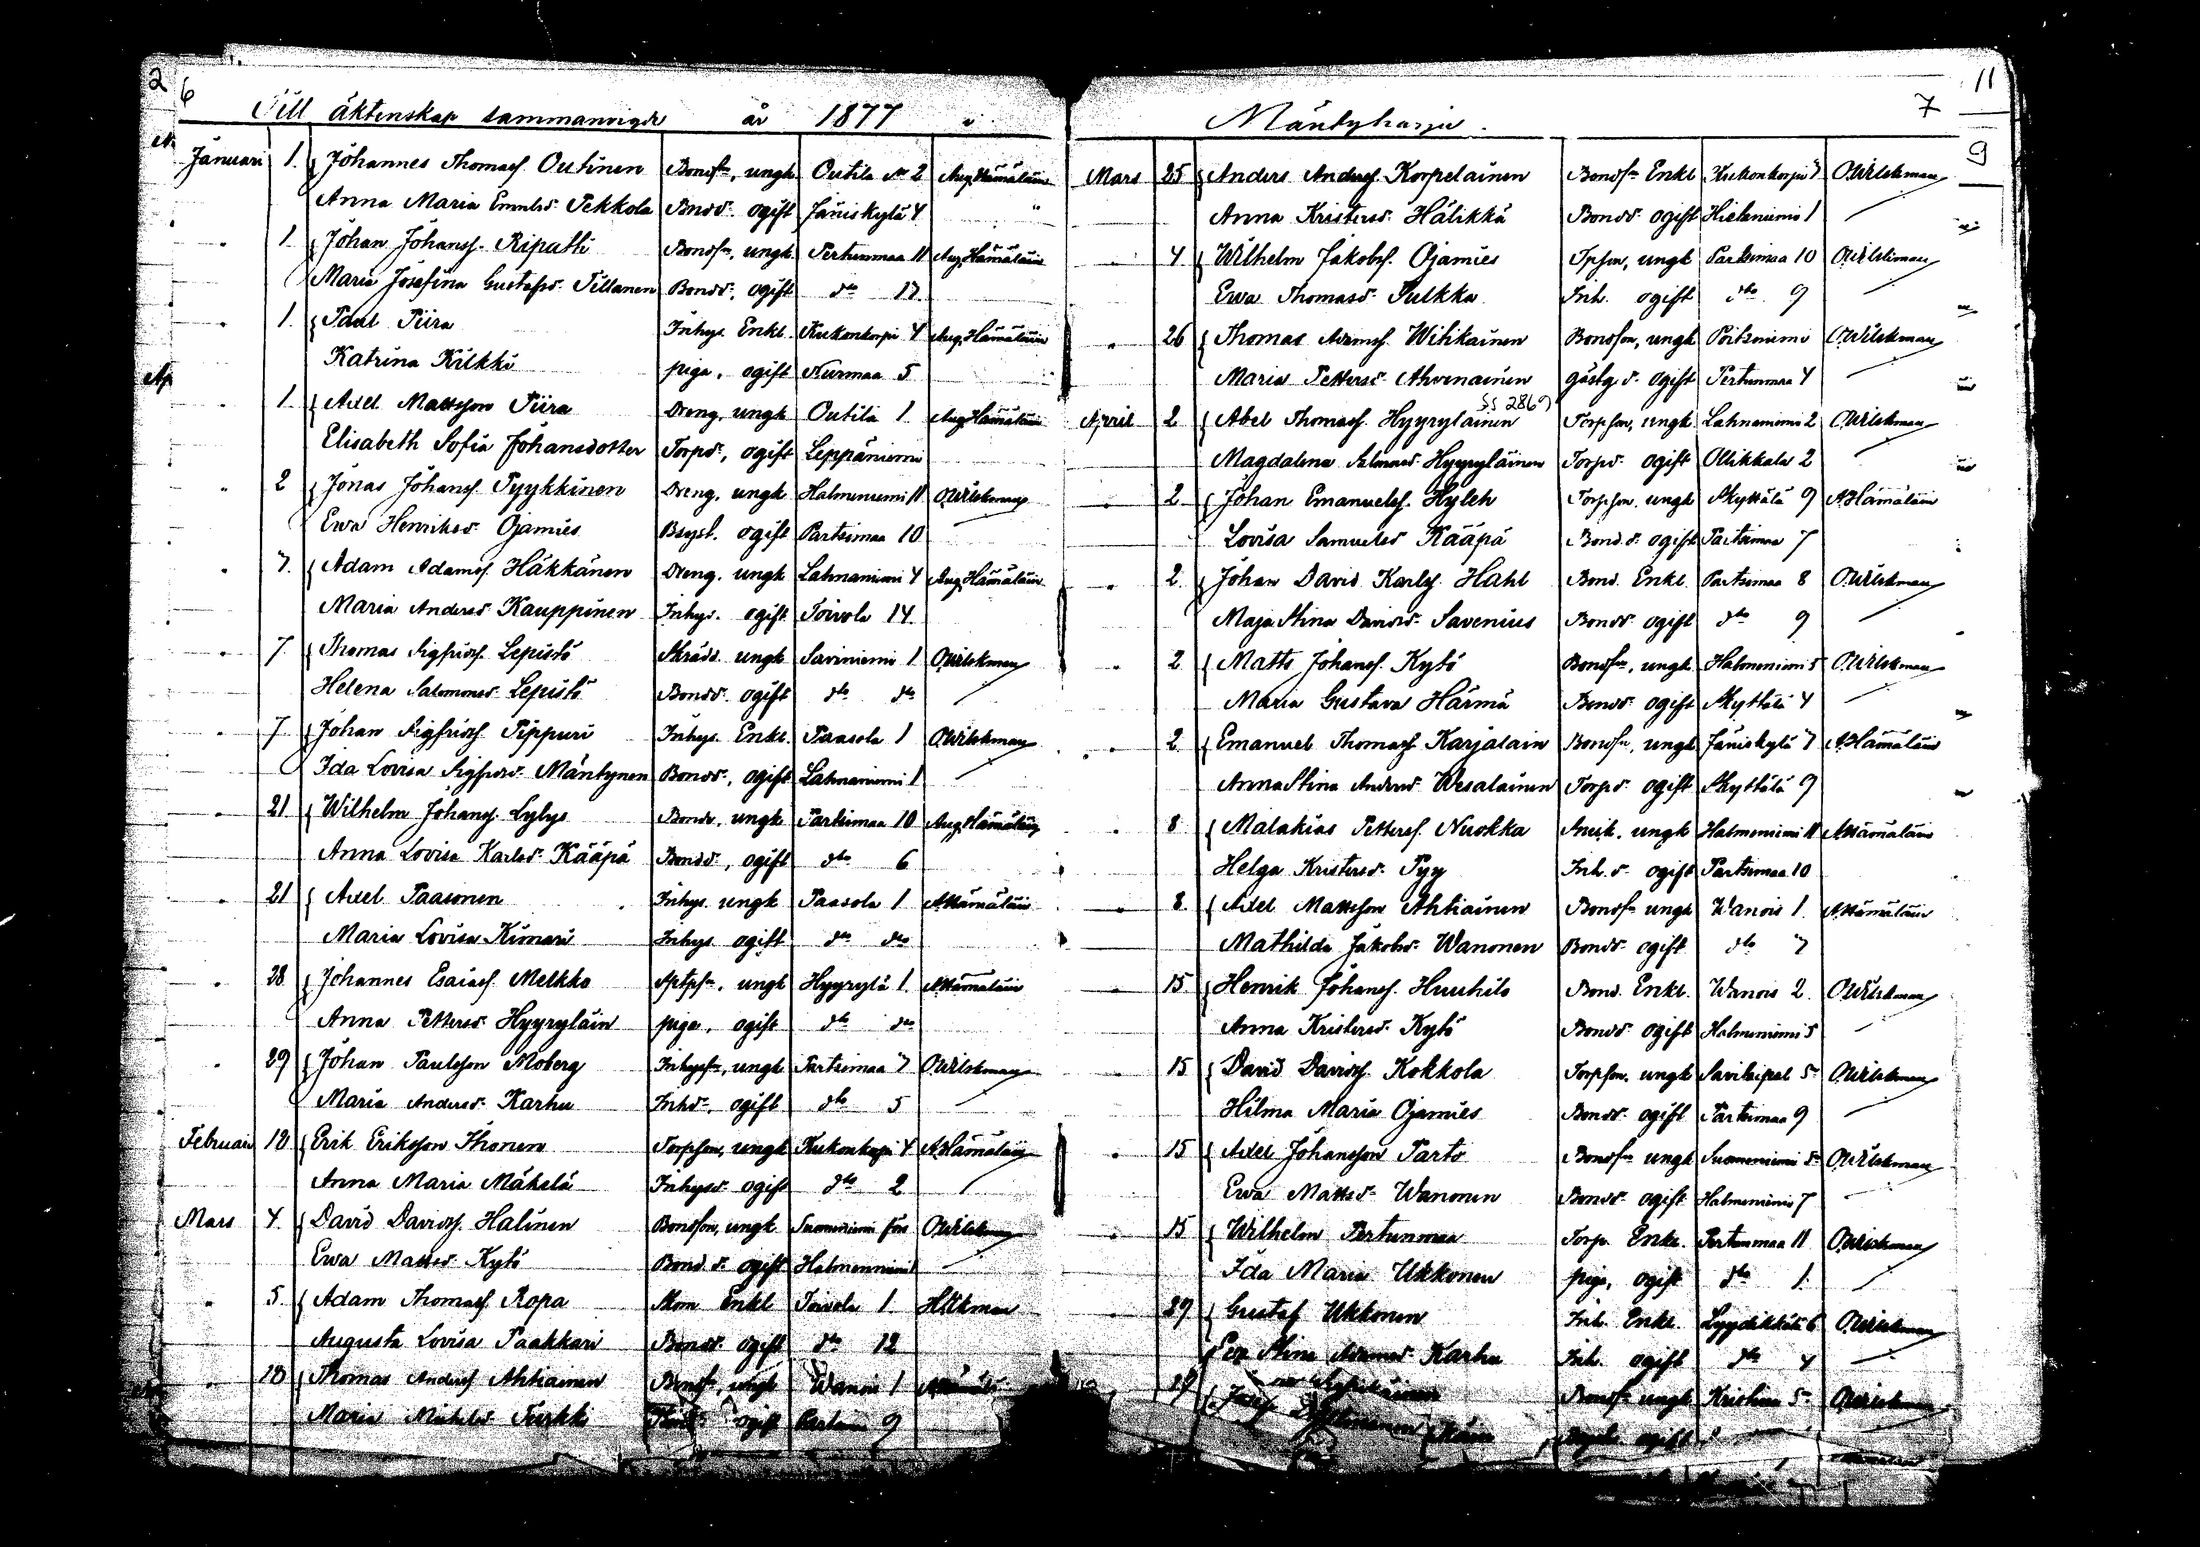 2 6
Till äktenskap sammanvigde år 1877 i
Januari 1. Johannes Thomasf. Outinen Bondsn, ungk Outila No 2 Aug. Hämäläin
Anna Maria Emnlsd. Pekkola Bndd. ogift Jäniskylä 4 "
" 1. Johan Johansf. Riputti Bondsn, ungk. Pertunmaa 11 Aug. Hämäläin
Maria Josefina Gustafsd. Pillanen Bondd. ogift dto 17
" 1. Paul Piira Inhys. Enkl. Kiekonkorpi 4 Aug. Hämäläin
Katrina Kilkki piga, ogift Nurmaa 5
" 1 Axel Mattsson Piira Dreng, ungk Outila 1 Aug. Hämäläin
Elisabeth Sofia Johansdotter Torpd, ogift Leppäniemi
" 2 Jonas Johansf. Pyykkinen Dreng. ungk Halmeniemi 11 O. Wilskman
Ewa Henriksd. Ojamies ogift Partsimaa 10
" 7. Adam Adamsf. Häkkänen Dreng. ungk Lahnaniemi 4 Aug. Hämäläin
Maria Andersd Kauppinen Inhys. ogift Toivola 14.
" 7 Thomas Sigfridsf. Lepistö Skrädd. ungk Saviniemi 1 O. Wilskman
Helena Salomonsd. Lepistö Bondd. ogift dto dto
" 7 Johan Sigfridsf Pippuri Inhys. Enkl. Paasola 1 O. Wilskman
Ida Lovisa Sigfridsd. Mäntynen Bondd. ogift Lahnaniemi 1
" 21 Wilhelm Johansf. Lylys Bonde, ungk Partsimaa 10 Aug. Hämäläin
Anna Lovisa Karlsd. Kääpä Bondd., ogift dto 6
" 21 Axel Paasonen Inhys. ungk Paasola 1 A Hämäläin
Maria Lovisa Kimari Inhys. ogift dto dto
" 28 Johannes Esaiasf. Melkko ungk Hyyrylä 1. A Hämäläin
Anna Pettersd. Hyyryläin piga, ogift dto dto
" 29 Johan Paulsson Moberg Inhyssn, ungk Partsimaa 7 O. Wilskman
Maria Andersd. Karhu Inhd., ogift dto 5
Februari 18 Erik Eriksson Ihonen Torpson, ungk Kiekonkorpi 4 A Hämäläin
Anna Maria Mäkelä Inhysd ogift dto 2
Mars 4. David Davidsf. Halinen Bondson, ungk Suomeniemi O. Wilskman
Ewa Mattsd Kytö Bond.d. ogift Halmeniemi
" 5. Adam Thomasf. Ropa Enkl Toivola 1
Augusta Lovisa Paakkari Bondd. ogift dto 12
" 18 Thomas Andersf Ahtiainen Bondsn, ungk Wanois 1 A Hämälä
Maria Mickelsd Turkki ogift 9
11
7
9
Mäntyharju.
Mars 25 Anders Andersf. Korpelainen Bondsn Enkl Kiekonkorpi 7 O. Wilskman
Anna Kristersd. Hälikkä Bondd. ogift Hietaniemi 1
" 4 Wilhelm Jakobsf. Ojamies Tpson, ungk Partsimaa 10 O. Wilskman
Ewa Thomasd. Pulkka Inh. ogift dto 9
" 26 Thomas Adamsf. Wihikainen Bondson, ungk O. Wilskman
Maria Pettersd. Ahvenainen gästg d. ogift Pertunmaa 4
SS 2869
April 2 Abel Thomasf. Hyyryläinen Torpson, ungk Lahnaniemi 2 O. Wilskman
Magdalena Salmonsd. Hyyryläinen Torpd. ogift Ollikkala 2
2 Johan Emanuelsf. Hyleh Torpson. ungk Skyttälä 9 A Hämäläin
Lovisa Samuelsd Kääpä Bond.d. ogift Partsimaa 7
2 Johan David Karlsf Hahl Bond. Enkl. Partsimaa 8 O. Wilskman
Maja Stina Davidsd. Savenius Bondd. ogift dto 9
2 Matts Johansf. Kytö Bondsn, ungk Halmeniemi 5 O. Wilskman
Maria Gustava Härmä Bondd ogift Skyttälä 4
2 Emanuel Thomasf. Karjalain Bondsn, ungk Jäniskylä 7 A Hämäläin
Anna Stina Andersd Wesalainen Torpd. ogift Skyttälä 9
" 8 Malakias Pettersf. Nuokka ungk Halmeniemi 11 A Hämäläin
Helga Kristersd. Pyy Inh. d. ogift Partsimaa 10
8. Axel Mattsson Ahtiainen Bondsn ungk Wanois 1 A Hämäläin
Mathilda Jakobsd. Wanonen Bondd. ogift dto 7
15 Henrik Johansf. Huuhilo Bond. Enkl. Wanois 2. O. Wilskman
Anna Kristersd. Kytö Bondd. ogift Halmeniemi 5
15 David Davidsf. Kokkola Torpson. ungk Savitaipal 5 O. Wilskman
Hilma Maria Ojamies Bondd. ogift Partsimaa 9
15 Axel Johansson Parto Bondsn ungk Suomeniemi 5 O. Wilskman
Ewa Mattsd. Wanonen Bondd. ogift Halmeniemi 7
15 Wilhelm Pertunmaa Torp. Enkl. Pertunmaa 11 O. Wilskman
Ida Maria Ukkonen piga, ogift dto 1.
29 Gustaf Ukkonen Inh. Enkl. Lyydikkälä 6 O. Wilskman
Eva Stina Adamsd. Karhu Inh. ogift dto 4
29 Bondsn ungk 5 O. Wilskman
ogift